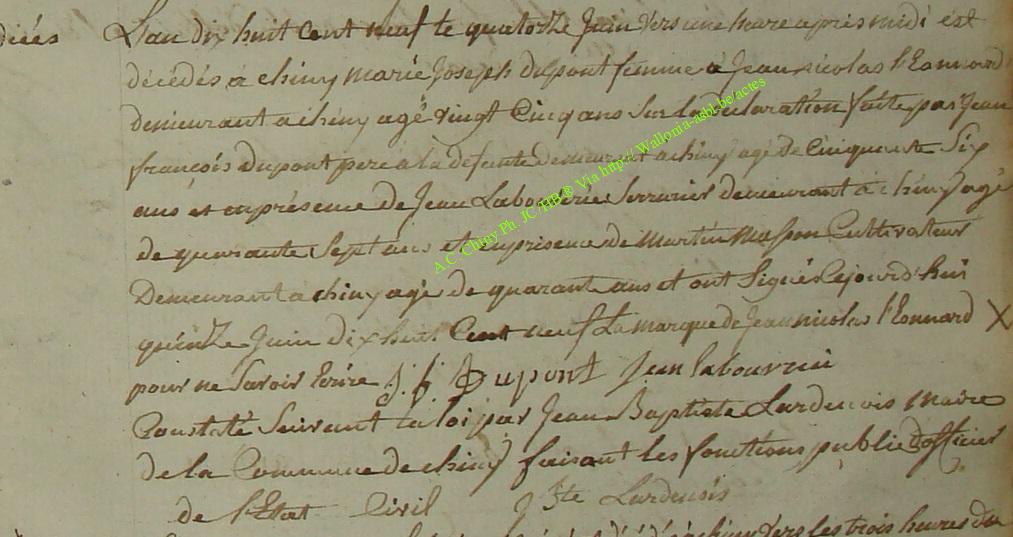 décés
L'an dix huit Cent neuf le quatorze Juin Vers une hure apres midi est
décédés à chiny marie Joseph dupont femme à Jean nicolas l'Eonnard
demeurant a chiny agé vingt Cinq ans Sur la declaration faite par Jean
françois dupont pere a la defunte demeurant a chiny agé de Cinquente Six
ans et en présence de Jean Labouverie Serrurier demeurant à chiny agé
de quarante Sept ans et en presence de Martin Masson Cultivateur
Demeurant a chiny agé de quarant ans et ont Signés Cejourd'hui
quinze Juin dix huit Cent neuf La marque de Jean nicolas l'Eonnard X
pour ne Savoir Ecrire J. f. Dupont Jean labouverie
Constaté Suivant la loi par Jean Baptiste Lardenois maire
de la Commune de chiny faisant les fonctions public d'officier
de l'Etat Civil J Bte Lardenois
vers les trois heures du
A.C. Chiny Ph. JC/HB® Via http://Wallonia-asbl.be/actes